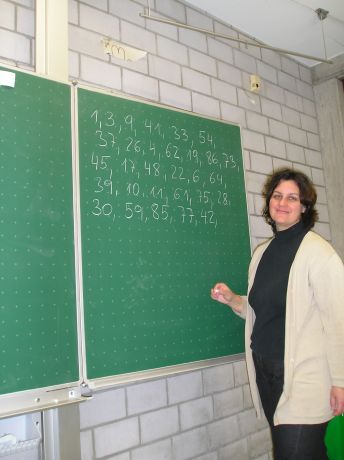 1, 3, 9, 41, 33, 54,
37, 26, 4, 62, 19, 86, 73,
45, 17, 48, 22, 6, 64,
39, 10, 11, 61, 75, 28,
30, 59, 85, 77, 42,